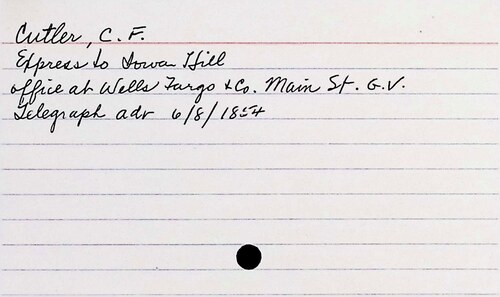 Cutler, C. F.
Express to Iowan Hill
office at Wells Fargo & Co. Main St. G.V.
Telegraph adv 6/8/1854